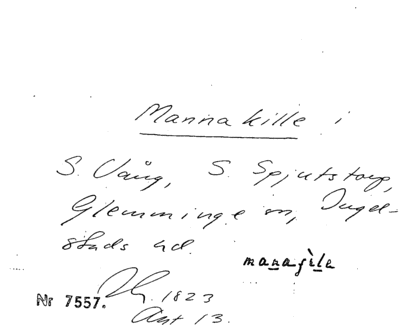 Mannakille i
S. Vång, S. Spjutstorp,
Glemminge sn, Ingel-
stads hd.
manaṡịlа
Nr 7557. 1823
Akt 13.